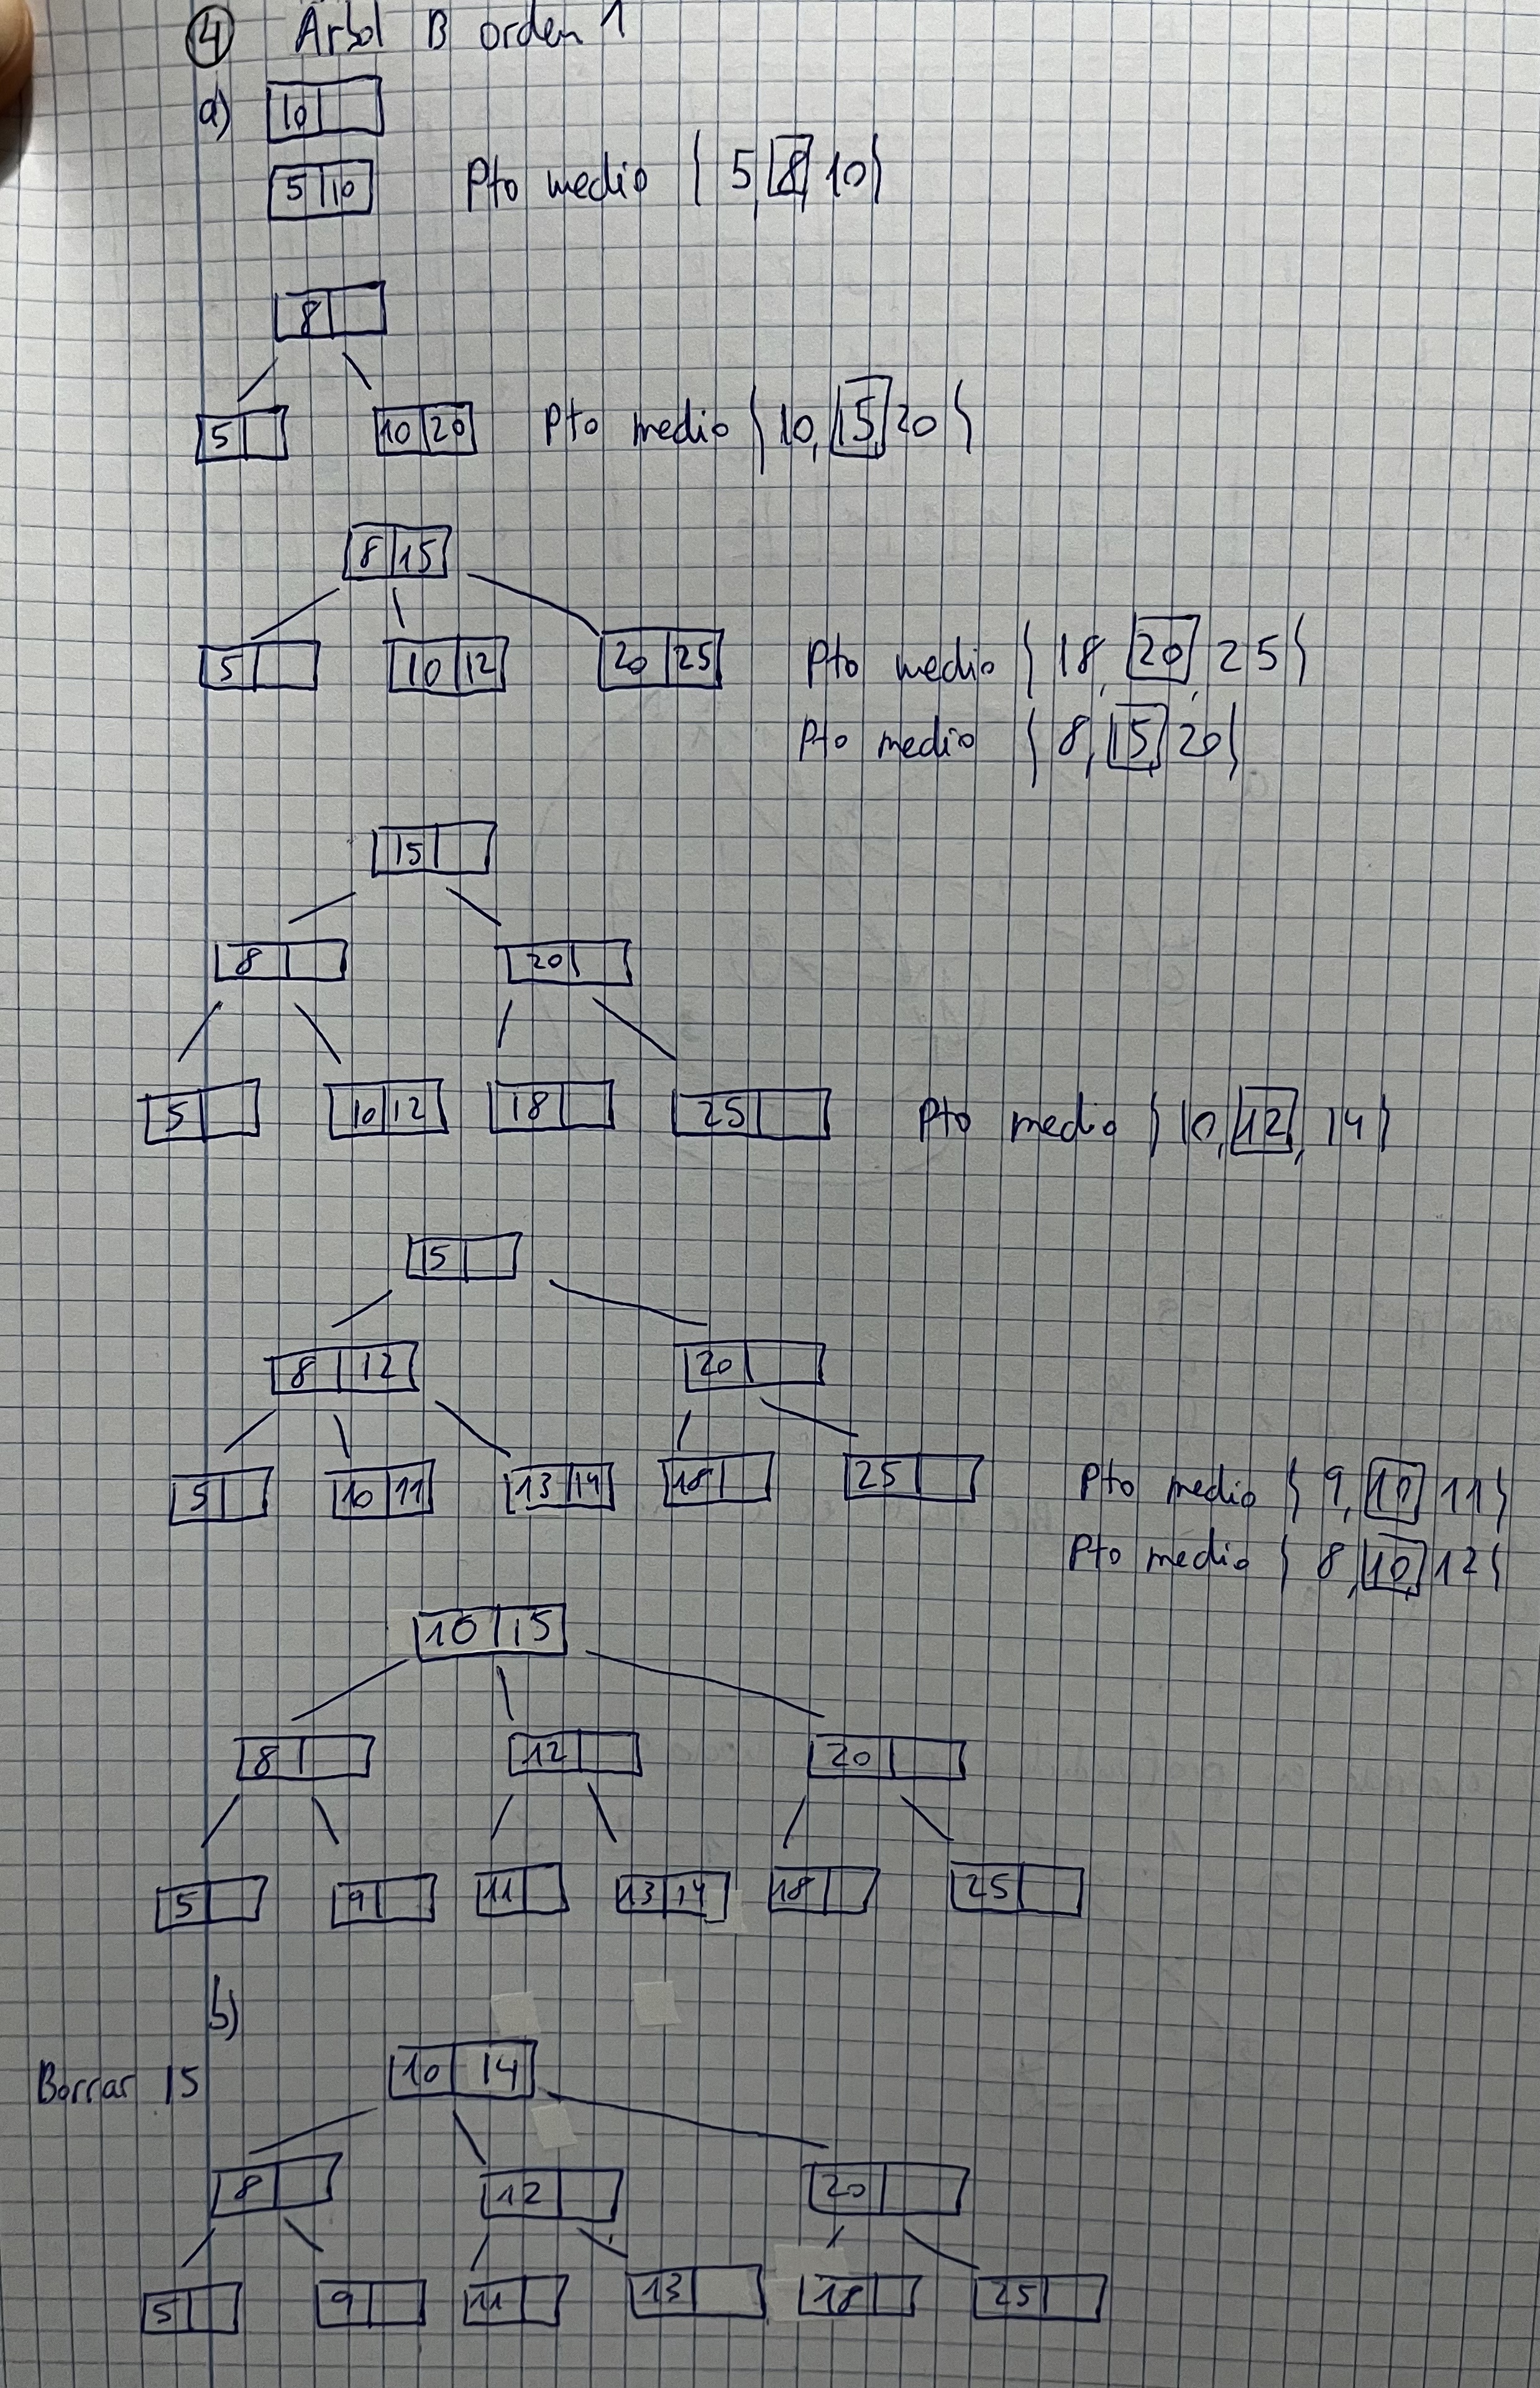 ④ Árbol B orden 1
a) 10
5 10 Pto medio { 5, 8, 10}
8
5 10 20 Pto medio { 10, 15, 20 }
8 15
5 10 12 20 25 Pto medio { 18, 20, 25 }
Pto medio { 8, 15, 20 }
15
8 20
5 10 12 18 25 Pto medio { 10, 12, 14 }
15
8 12 20
5 10 11 13 14 18 25 Pto medio { 9, 10, 11 }
Pto medio { 8, 10, 12 }
10 15
8 12 20
5 9 11 13 14 18 25
b)
Borrar 15 10 14
8 12 20
5 9 11 13 18 25